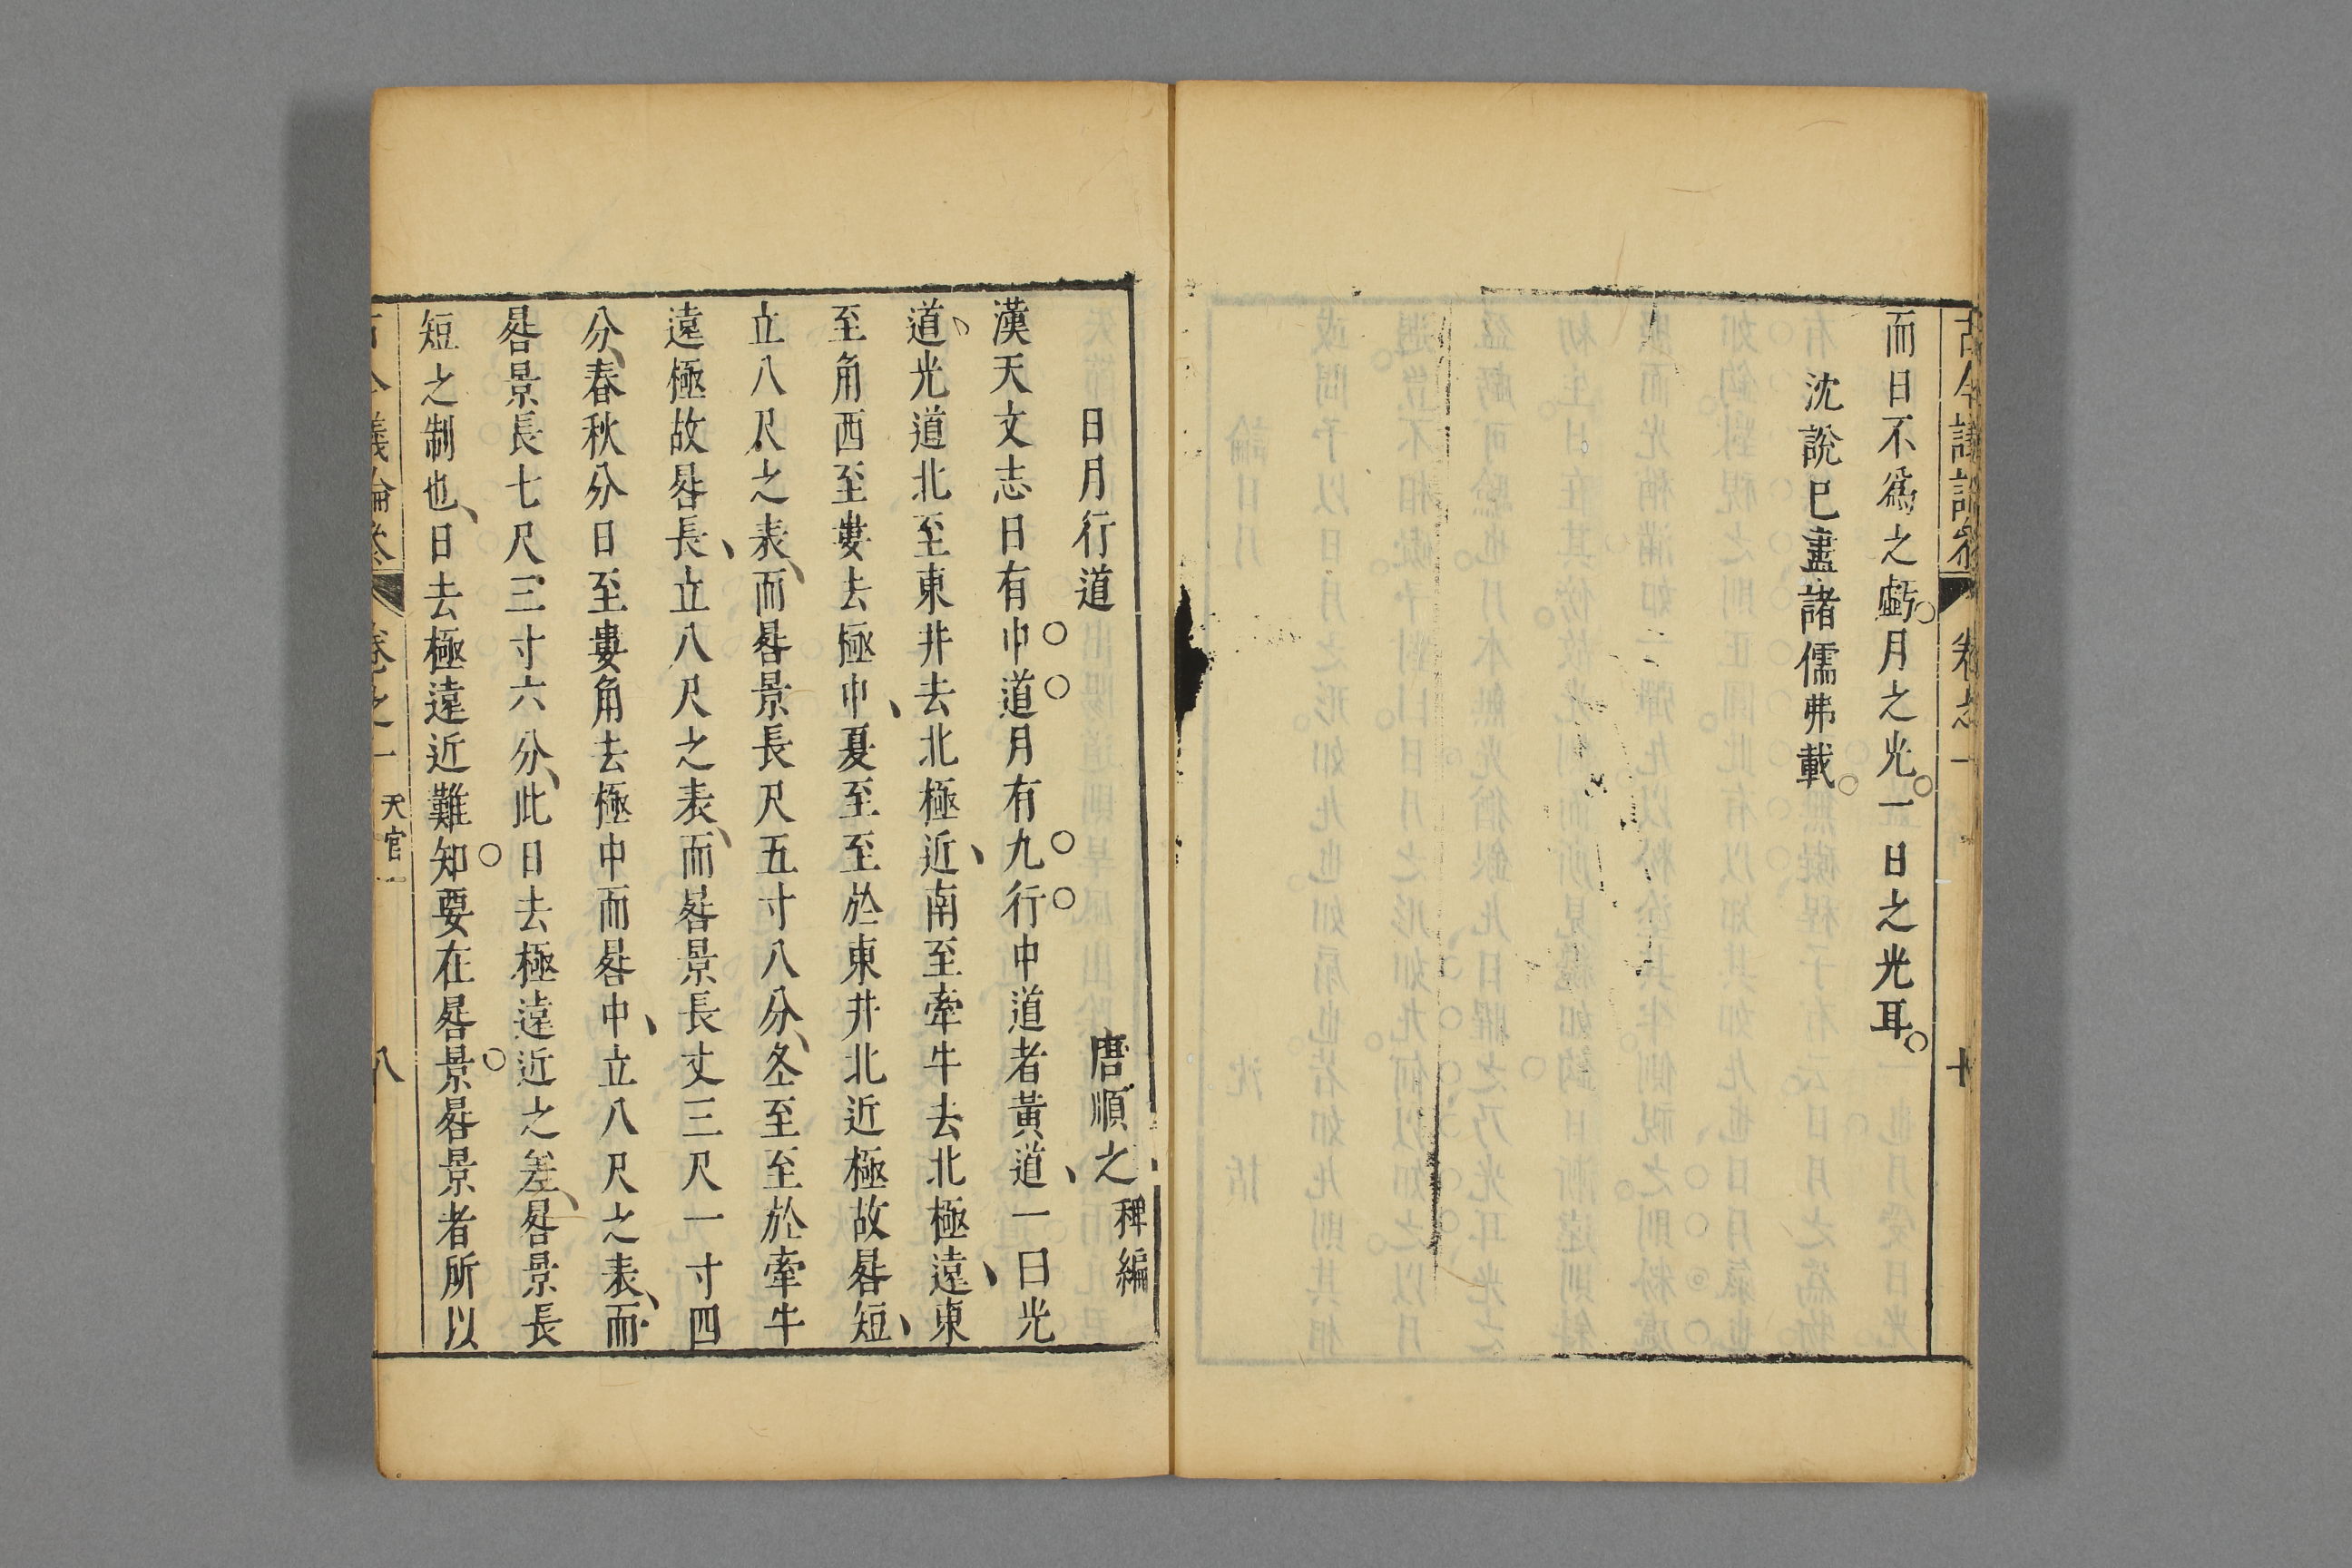 古今議論參 卷之一
而日不爲之虧月之光一日之光耳
沈說已盡諸儒弗載
日月行道 唐順之 稗編
漢天文志日有中道月有九行中道者黃道一曰光
道光道北至東井去北極近南至牽牛去北極遠東
至角西至婁去極中夏至至於東井北近極故晷短
立八尺之表而晷景長尺五寸八分冬至至於牽牛
遠極故晷長立八尺之表而晷景長丈三尺一寸四
分春秋分日至婁角去極中而晷中立八尺之表而
晷景長七尺三寸六分此日去極遠近之差晷景長
短之制也日去極遠近難知要在晷景晷景者所以
古今議論參 卷之一 天官一 八